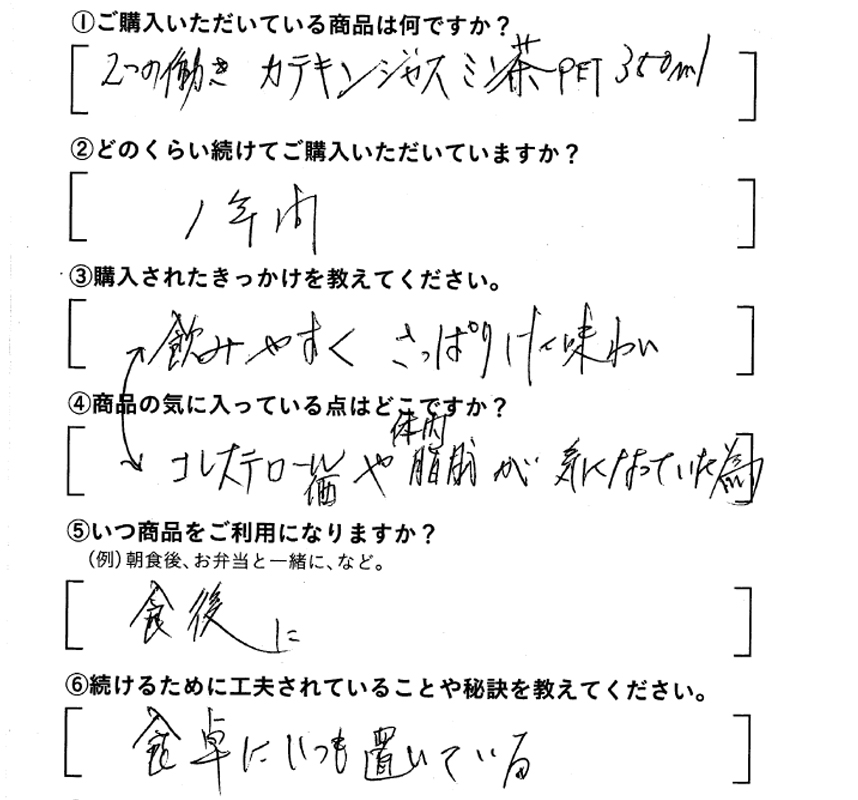 ①ご購入いただいている商品は何ですか？
2つの働き カテキンジャスミン茶 PET 350ml
②どのくらい続けてご購入いただいていますか？
1年間
③購入されたきっかけを教えてください。
飲みやすく さっぱりした味わい
④商品の気に入っている点はどこですか？
体内
コレステロール値や脂肪が気になっていた為
⑤いつ商品をご利用になりますか？
（例）朝食後、お弁当と一緒に、など。
食後に
⑥続けるために工夫されていることや秘訣を教えてください。
食卓にいつも置いている